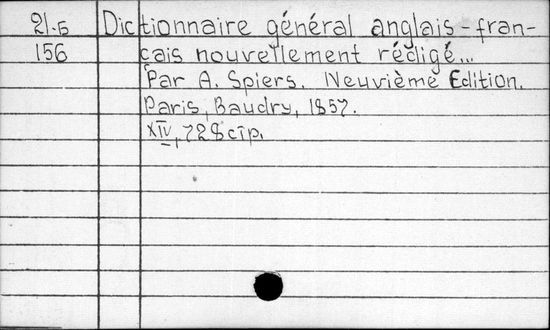 21.5 Dictionnaire général anglais-fran-
156 çais nouvellement rédigé...
Par A. Spiers. Neuvième Edition.
Paris, Baudry, 1857.
XIV, 728 стр.